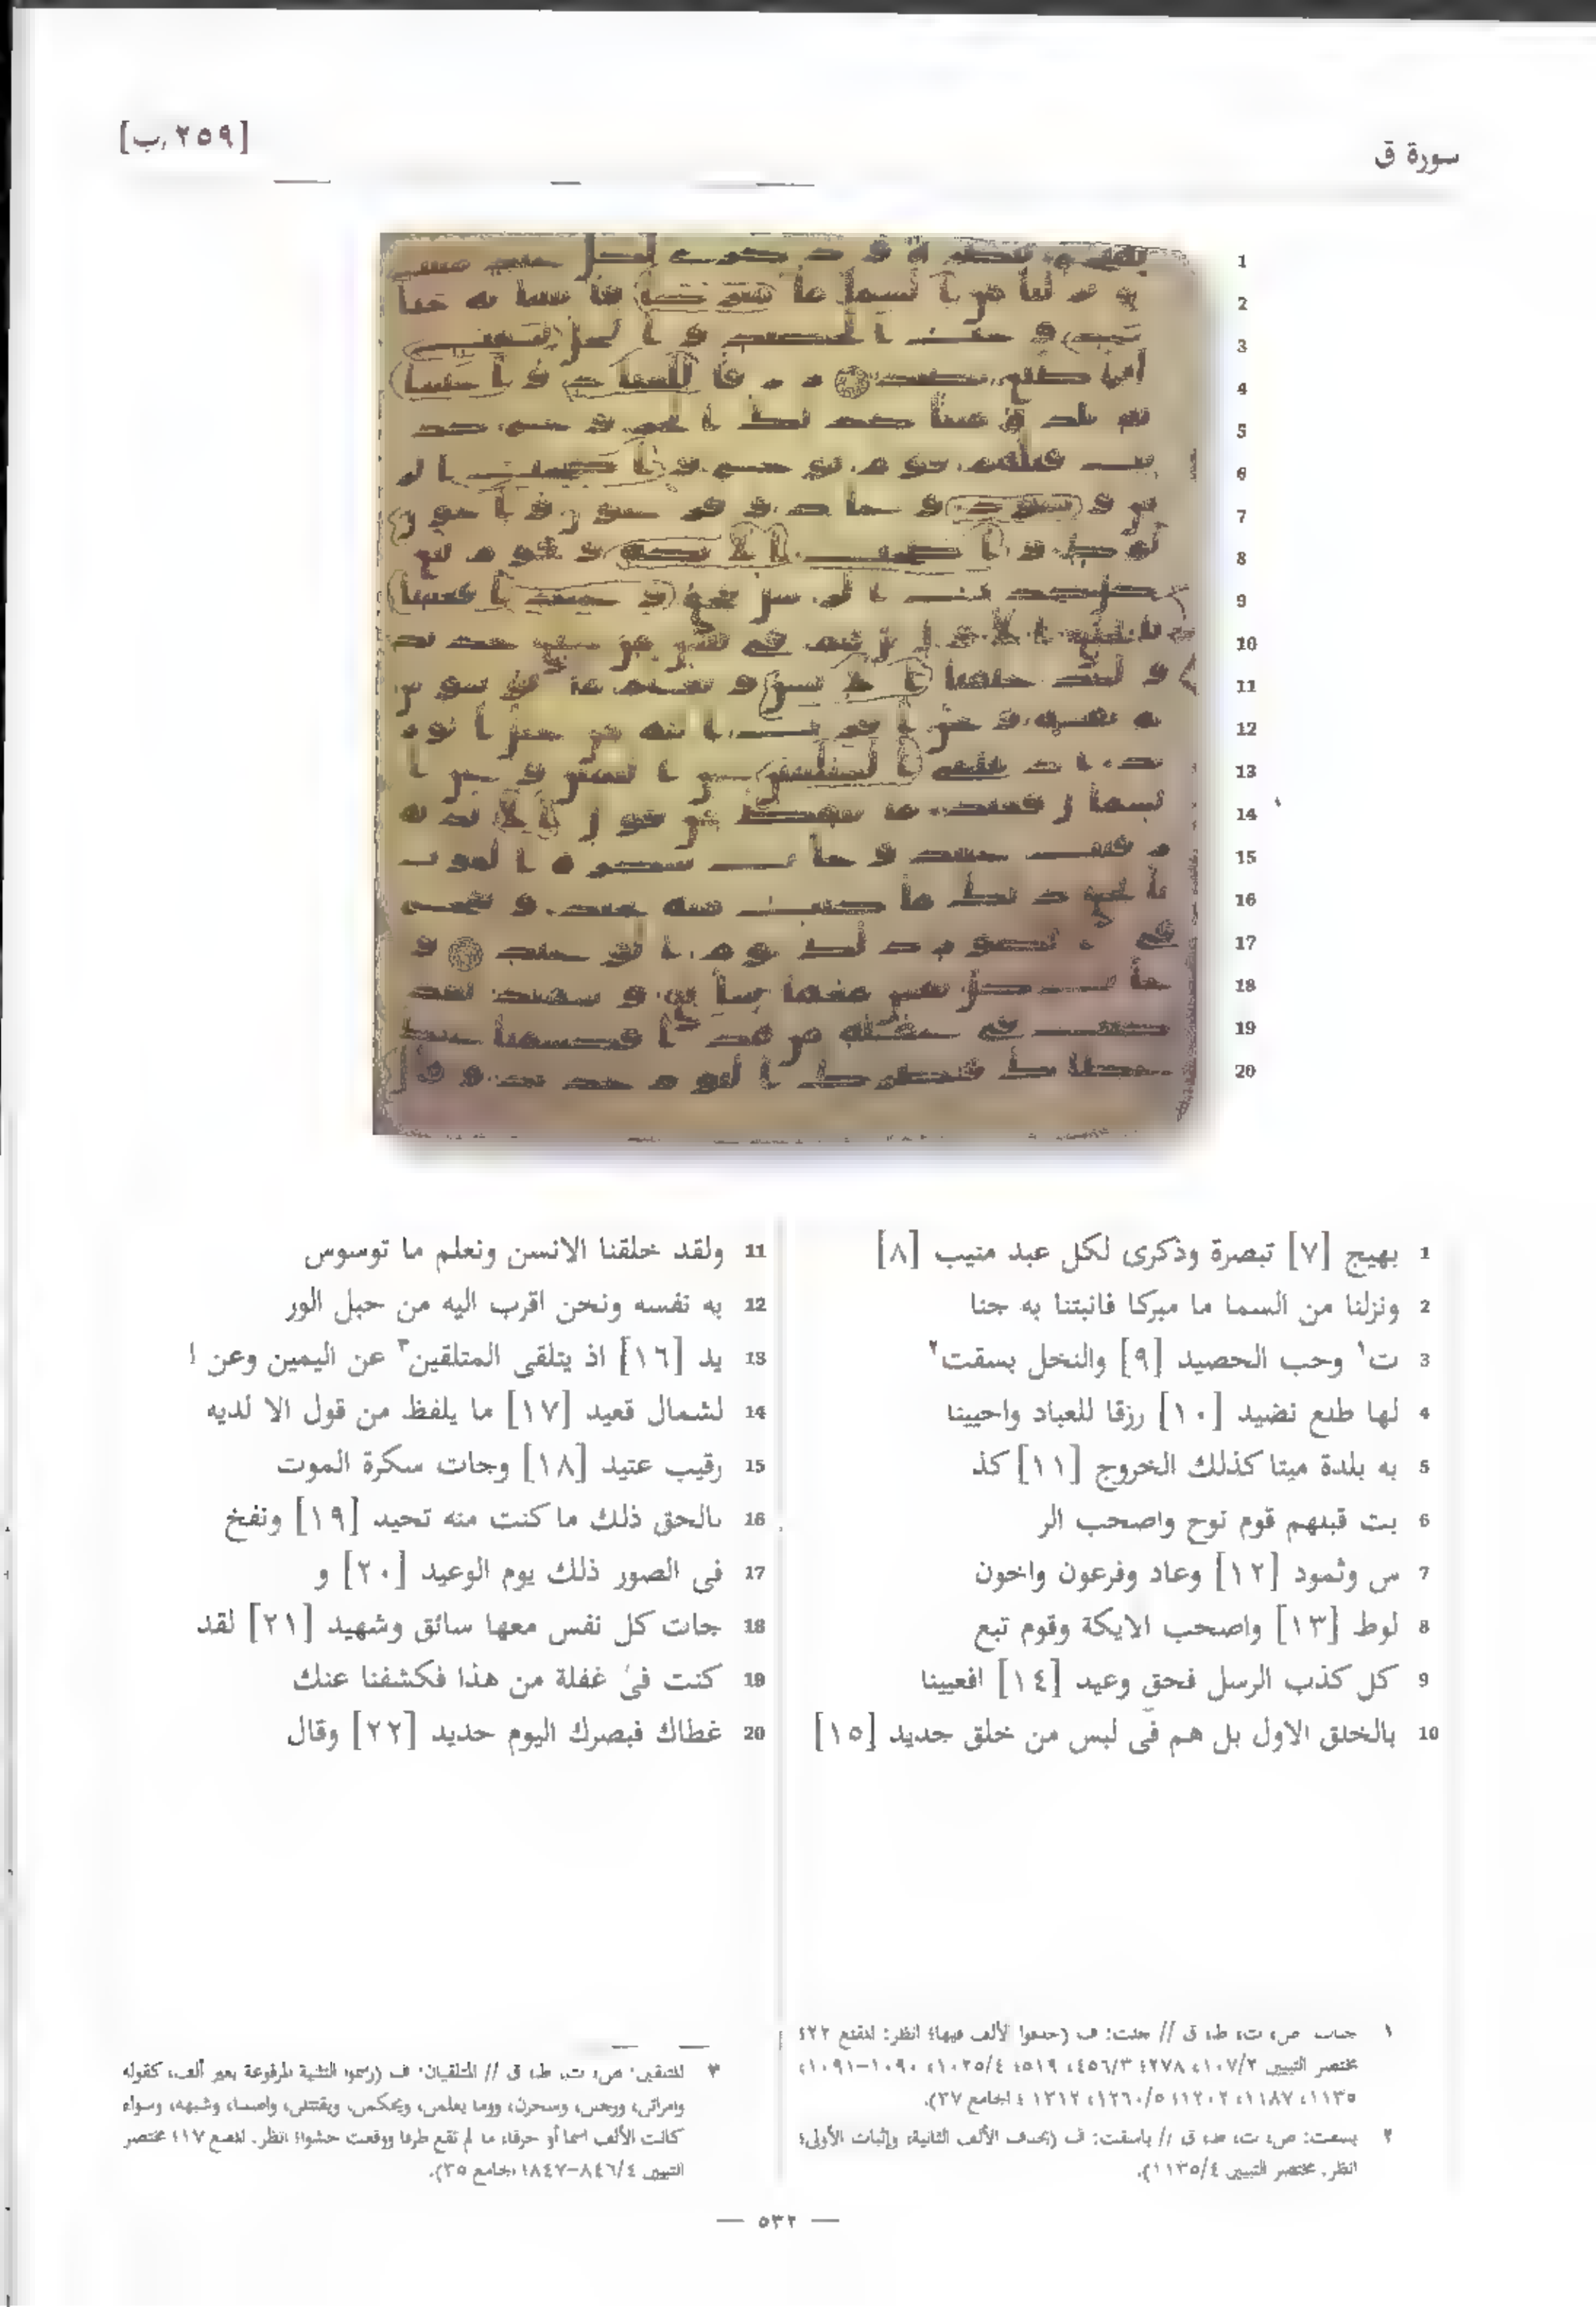 سورة ق
[٢٥٩,ب]
1 بهيج [٧] تبصرة وذكرى لكل عبد منيب [٨]
2 ونزلنا من السما ما مبركا فانبتنا به جنا
3 ت١ وحب الحصيد [٩] والنخل بسقت٢
4 لها طلع نضيد [١٠] رزقا للعباد واحيينا
5 به بلدة ميتا كذلك الخروج [١١] كذ
6 بت قبلهم قوم نوح واصحب الر
7 س وثمود [١٢] وعاد وفرعون واخون
8 لوط [١٣] واصحب الايكة وقوم تبع
9 كل كذب الرسل فحق وعيد [١٤] افعيينا
10 بالخلق الاول بل هم في لبس من خلق جديد [١٥]
11 ولقد خلقنا الانسن ونعلم ما توسوس
12 به نفسه ونحن اقرب اليه من حبل الور
13 يد [١٦] اذ يتلقى المتلقين٣ عن اليمين وعن ا
14 لشمال قعيد [١٧] ما يلفظ من قول الا لديه
15 رقيب عتيد [١٨] وجات سكرة الموت
16 بالحق ذلك ما كنت منه تحيد [١٩] ونفخ
17 فى الصور ذلك يوم الوعيد [٢٠] و
18 جات كل نفس معها سائق وشهيد [٢١] لقد
19 كنت فى غفلة من هذا فكشفنا عنك
20 غطاك فبصرك اليوم حديد [٢٢] وقال
١ جنات: ص، ت، ط، ق // جنت: ف (حذفوا الألف فيها؛ انظر: المقنع ٢٢؛
مختصر التبيين ١٠٧/٢، ٢٧٨؛ ٤٥٦/٣، ٥١٩؛ ١٠٢٥/٤، ١٠٩٠-١٠٩١،
١١٣٥، ١١٨٧، ١٢٠٢؛ ١٢٦٠/٥، ١٣١٢؛ الجامع ٣٧).
٢ بسقت: ص، ت، ط، ق // باسقت: ف (بحذف الألف الثانية، وإثبات الأولى؛
انظر: مختصر التبيين ١١٣٥/٤).
٣ المتلقين: ص، ت، ط، ق // المتلقيان: ف (رسموا التثنية المرفوعة بغير ألف، كقوله
وامراتن، ورجلن، وسحرن، وما يعلمن، ويحكمن، ويقتتلن، واضلنا، وشبهه، وسواء
كانت الألف اسما أو حرفا، ما لم تقع طرفا ووقعت حشوا؛ انظر: المقنع ١٧؛ مختصر
التبيين ٨٤٦/٤-٨٤٧؛ الجامع ٣٥).
— ٥٣٢ —